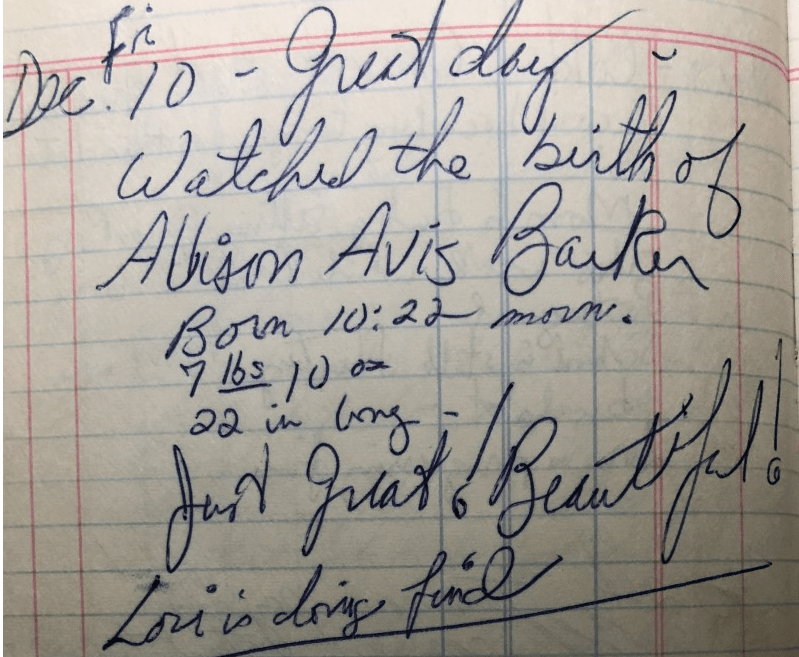 Fri
Dec. 10 - Great day -
Watched the birth of
Allison Avis Barker
Born 10:22 morn.
7 lbs 10 oz
22 in long -
Just Great! Beautiful!
Lori is doing fine